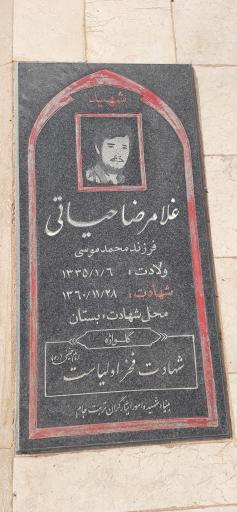 شهید
غلامرضا حیاتی
فرزند محمد موسی
ولادت: ۱۳۳۵/۱/۶
شهادت: ۱۳۶۰/۱۱/۲۸
محل شهادت: بستان
گلواژه
شهادت فخر اولیاست
امام خمینی (ره)
بنیاد شهید و امور ایثارگران تربت جام